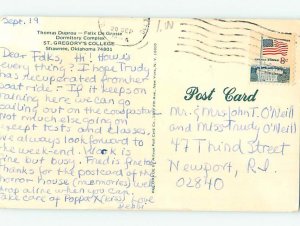 Sept. 19
Thomas Duprou – Felix De Grasse
Dormitory Complex
ST. GREGORY'S COLLEGE
Shawnee, Oklahoma 74801
Dear Folks, Hi! How is
everything? I hope Trudy
has recuperated from her
boat ride! If it keeps on
raining here we can go
sailing out on the cow pasture.
Not much else going on
except tests and classes.
We always look forward to
the week-end. Work is
fine but busy. Fred is fine too.
Thanks for the postcard of the
horror house (memories) we
drop a line when you can.
Take care of Poppa N (kiss) love
Debbi
Post Card
Mr. & Mrs John T. O'Neill
and Miss Trudy O'Neill
47 Third Street
Newport, R.I.
02840